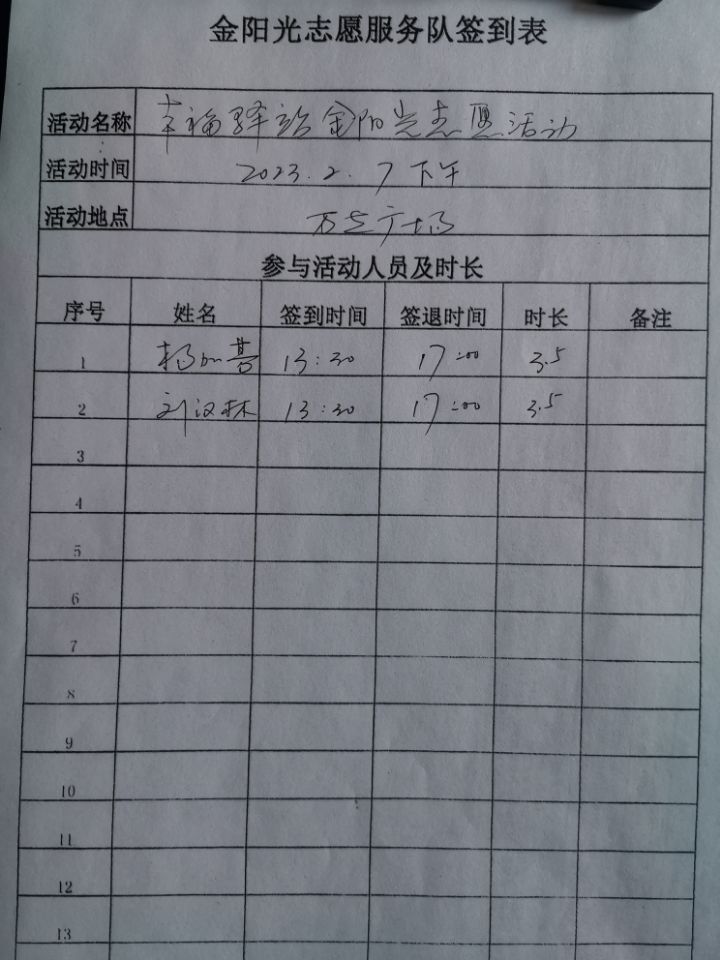 金阳光志愿服务队签到表
活动名称 幸福驿站金阳光志愿活动
活动时间 2023.2.7下午
活动地点 万达广场
参与活动人员及时长
序号 姓名 签到时间 签退时间 时长 备注
1 杨加 13:30 17:00 3.5
2 刘汉林 13:30 17:00 3.5
3
4
5
6
7
8
9
10
11
12
13